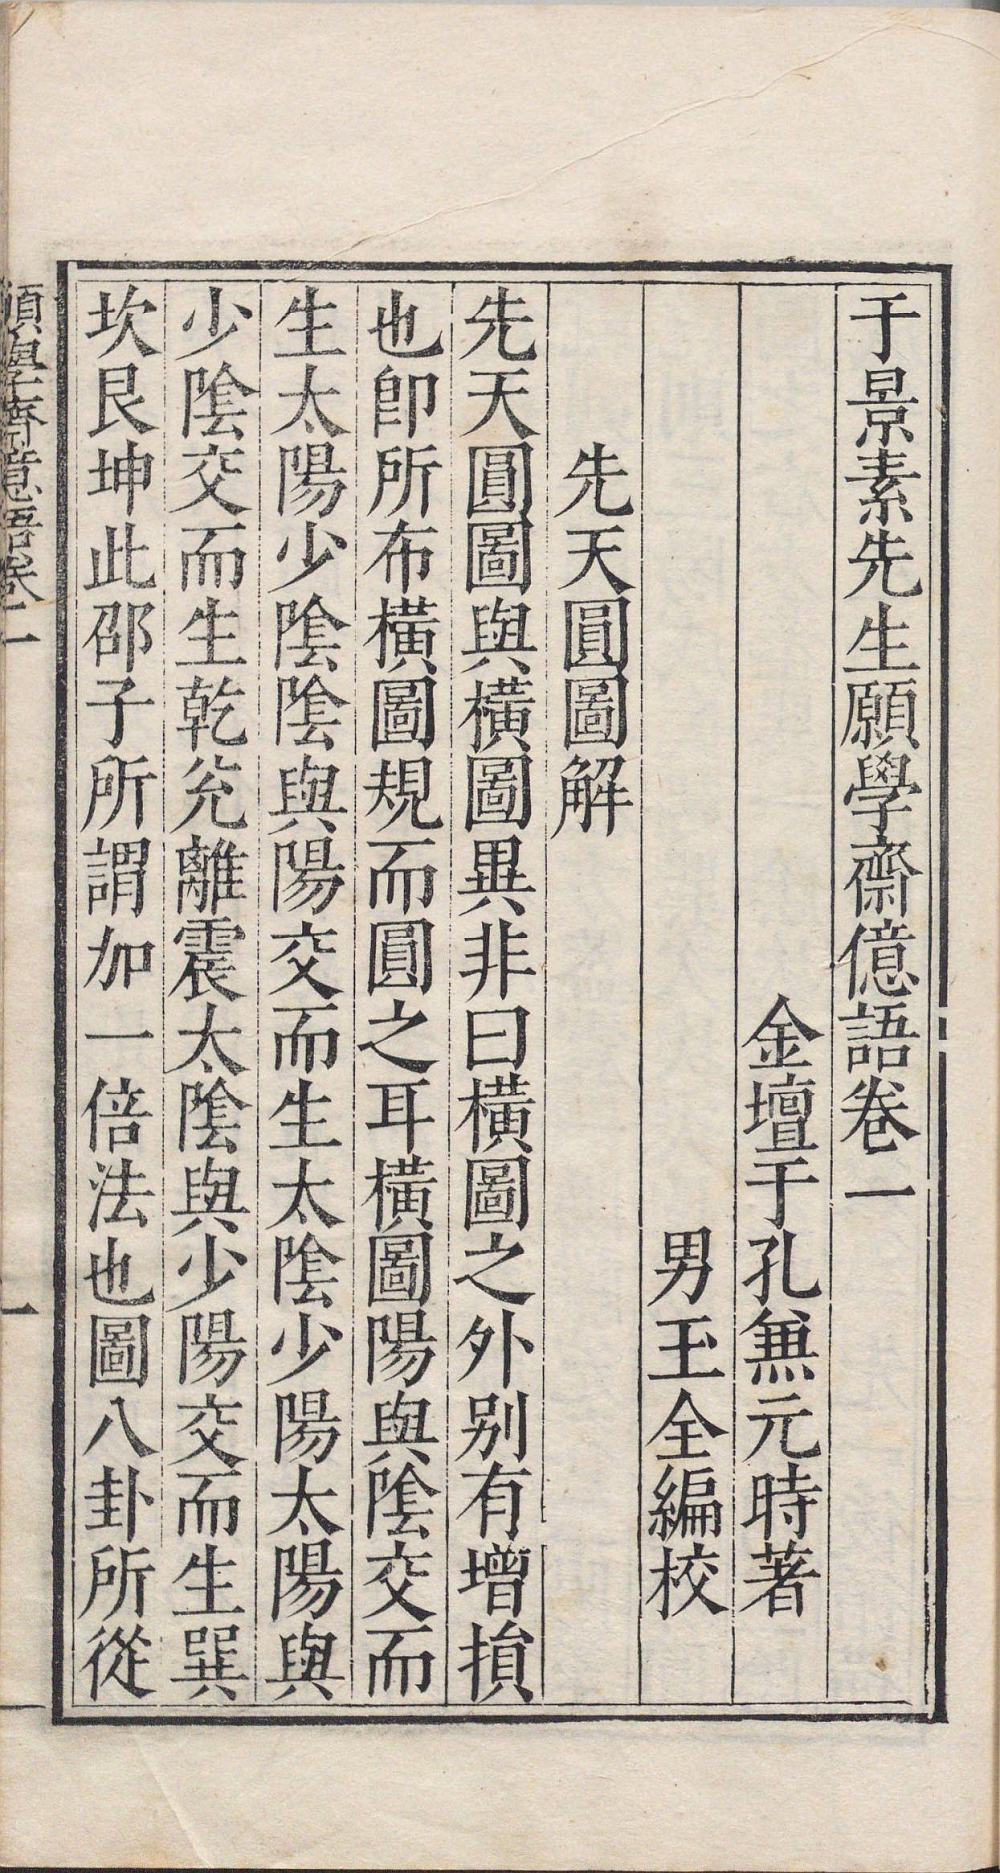 于景素先生願學齋億語卷一
金壇于孔兼元時著
男玉全編校
先天圓圖解
先天圓圖與橫圖異非曰橫圖之外別有增損
也卽所布橫圖規而圓之耳橫圖陽與陰交而
生太陽少陰陰與陽交而生太陰少陽太陽與
少陰交而生乾兌離震太陰與少陽交而生巽
坎艮坤此邵子所謂加一倍法也圖八卦所從
願學齋億語卷一
一